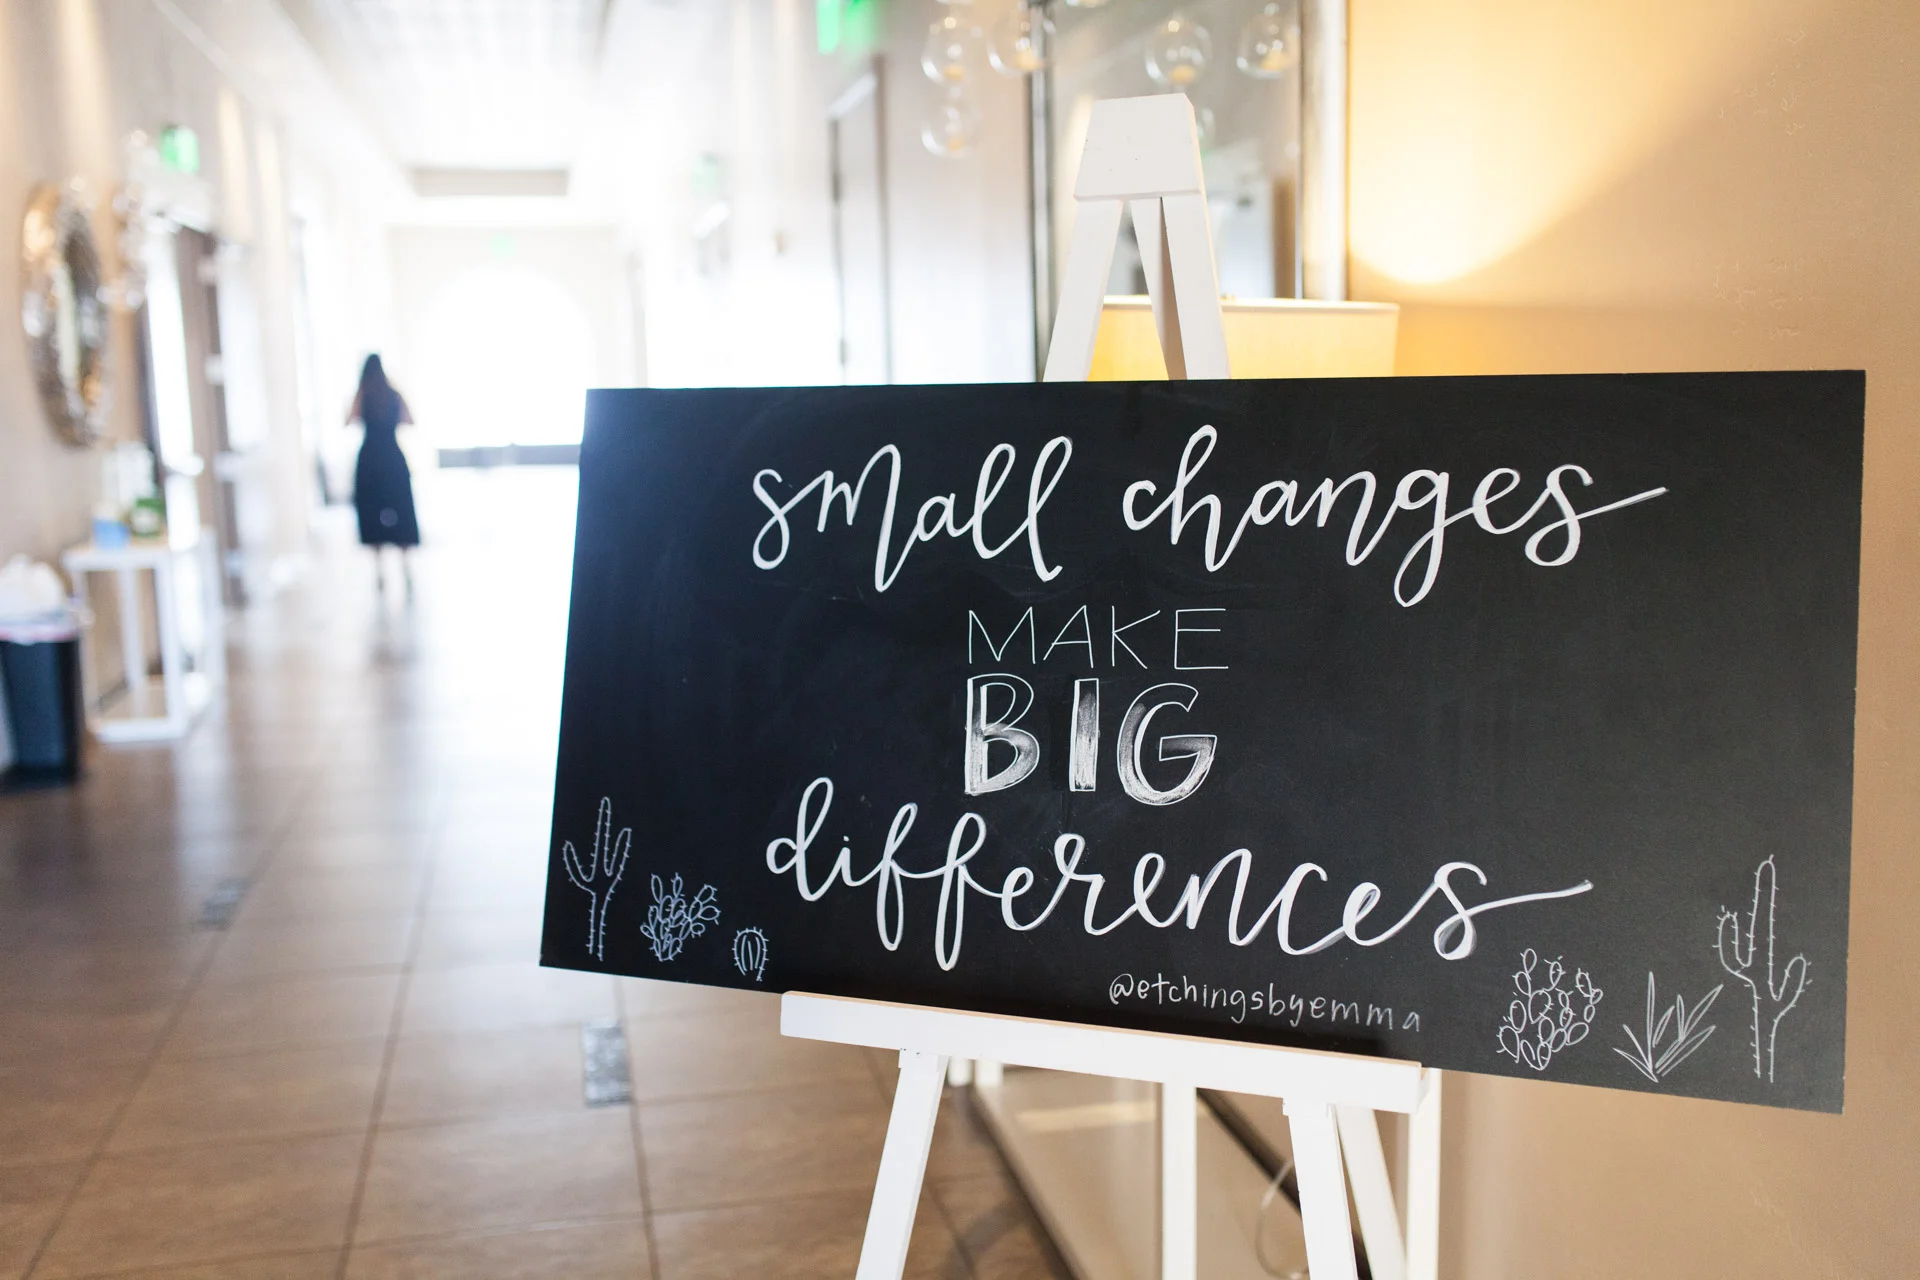 small changes
MAKE
BIG
differences
@etchingsbyemma